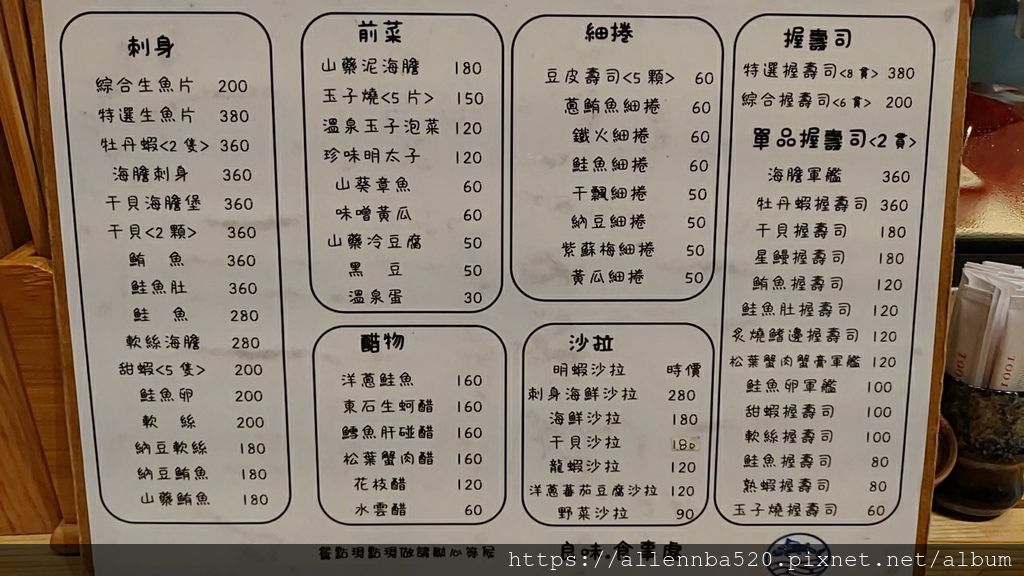 刺身
綜合生魚片 200
特選生魚片 380
牡丹蝦<2隻> 360
海膽刺身 360
干貝海膽堡 360
干貝<2顆> 360
鮪 魚 360
鮭魚肚 360
鮭 魚 280
軟絲海膽 280
甜蝦<5隻> 200
鮭魚卵 200
軟 絲 200
納豆軟絲 180
納豆鮪魚 180
山藥鮪魚 180
前菜
山藥泥海膽 180
玉子燒<5片> 150
溫泉玉子泡菜 120
珍味明太子 120
山葵章魚 60
味噌黃瓜 60
山藥冷豆腐 50
黑 豆 50
溫泉蛋 30
醋物
洋蔥鮭魚 160
東石生蚵醋 160
鱈魚肝碰醋 160
松葉蟹肉醋 160
花枝醋 120
水雲醋 60
細捲
豆皮壽司<5顆> 60
蔥鮪魚細捲 60
鐵火細捲 60
鮭魚細捲 60
干瓢細捲 50
納豆細捲 50
紫蘇梅細捲 50
黃瓜細捲 50
沙拉
明蝦沙拉 時價
刺身海鮮沙拉 280
海鮮沙拉 180
干貝沙拉 180
龍蝦沙拉 120
洋蔥蕃茄豆腐沙拉 120
野菜沙拉 90
握壽司
特選握壽司<8貫> 380
綜合握壽司<6貫> 200
單品握壽司<2貫>
海膽軍艦 360
牡丹蝦握壽司 360
干貝握壽司 180
星鰻握壽司 180
鮪魚握壽司 120
鮭魚肚握壽司 120
炙燒鰭邊握壽司 120
松葉蟹肉蟹膏軍艦 120
鮭魚卵軍艦 100
甜蝦握壽司 100
軟絲握壽司 100
鮭魚握壽司 80
熟蝦握壽司 80
玉子燒握壽司 60
餐點現點現做請耐心等候
良味.食事處
https://allennba520.pixnet.net/album